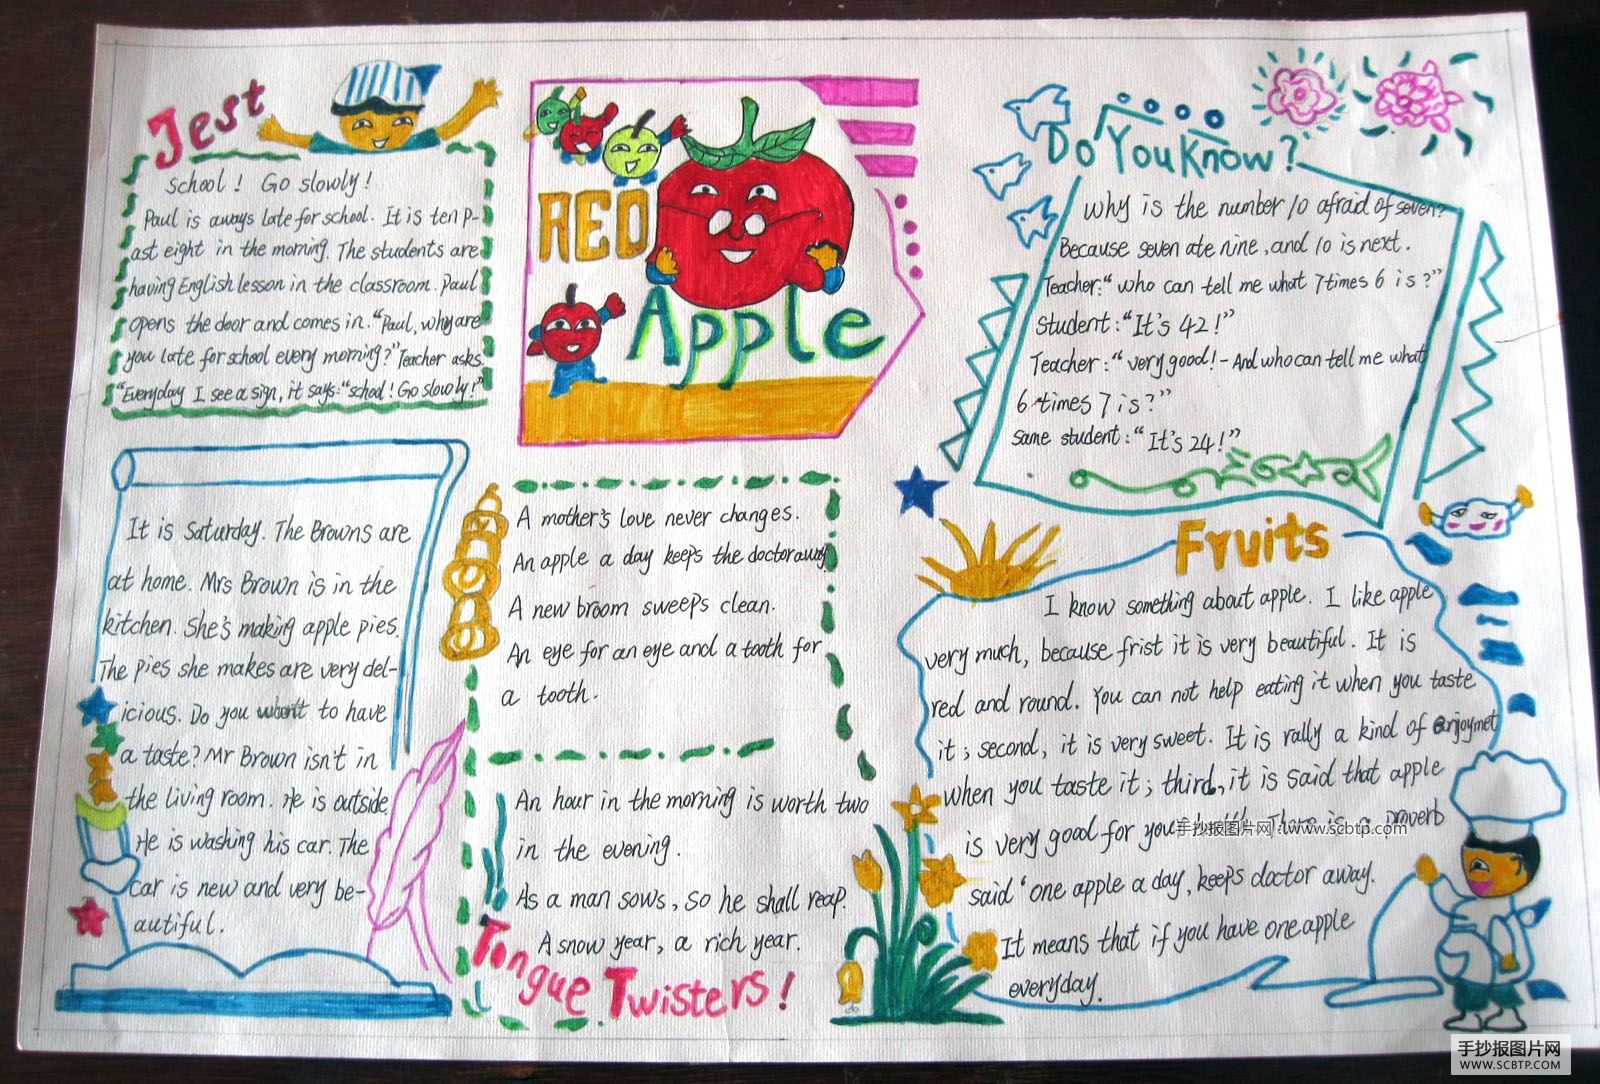 Jest
School! Go slowly!
Paul is aways late for school. It is ten p-
ast eight in the morning. The students are
having English lesson in the classroom. Paul
opens the door and comes in. "Paul, why are
you late for school every morning?" Teacher asks
"Everyday I see a sign, it says: "school! Go slowly!"
RED
Apple
Do You Know?
Why is the number 10 afraid of seven?
Because seven ate nine, and 10 is next.
Teacher: "who can tell me what 7 times 6 is?"
Student: "It's 42!"
Teacher: "very good! - And who can tell me what
6 times 7 is?"
Same student: "It's 24!"
It is Saturday. The Browns are
at home. Mrs Brown is in the
kitchen. She's making apple pies.
The pies she makes are very del-
icious. Do you want to have
a taste? Mr Brown isn't in
the living room. He is outside.
He is washing his car. The
car is new and very be-
autiful.
A mother's love never changes.
An apple a day keeps the doctor away
A new broom sweeps clean.
An eye for an eye and a tooth for
a tooth.
An hour in the morning is worth two
in the evening.
As a man sows, so he shall reap.
A snow year, a rich year.
Tongue Twisters!
Fruits
I know something about apple. I like apple
very much, because frist it is very beautiful. It is
red and round. You can not help eating it when you taste
it; second, it is very sweet. It is rally a kind of enjoymet
when you taste it; third, it is said that apple
is very good for your There is a proverb
said 'one apple a day, keeps doctor away.
It means that if you have one apple
everyday.
手抄报图片网:www.scbtp.com
手抄报图片网
WWW.SCBTP.COM